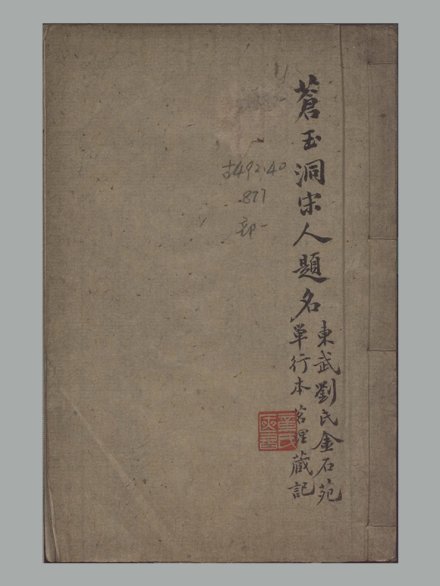 蒼玉洞宋人題名
東武劉氏金石苑
單行本 茗理藏記
古492.40
.877
部一